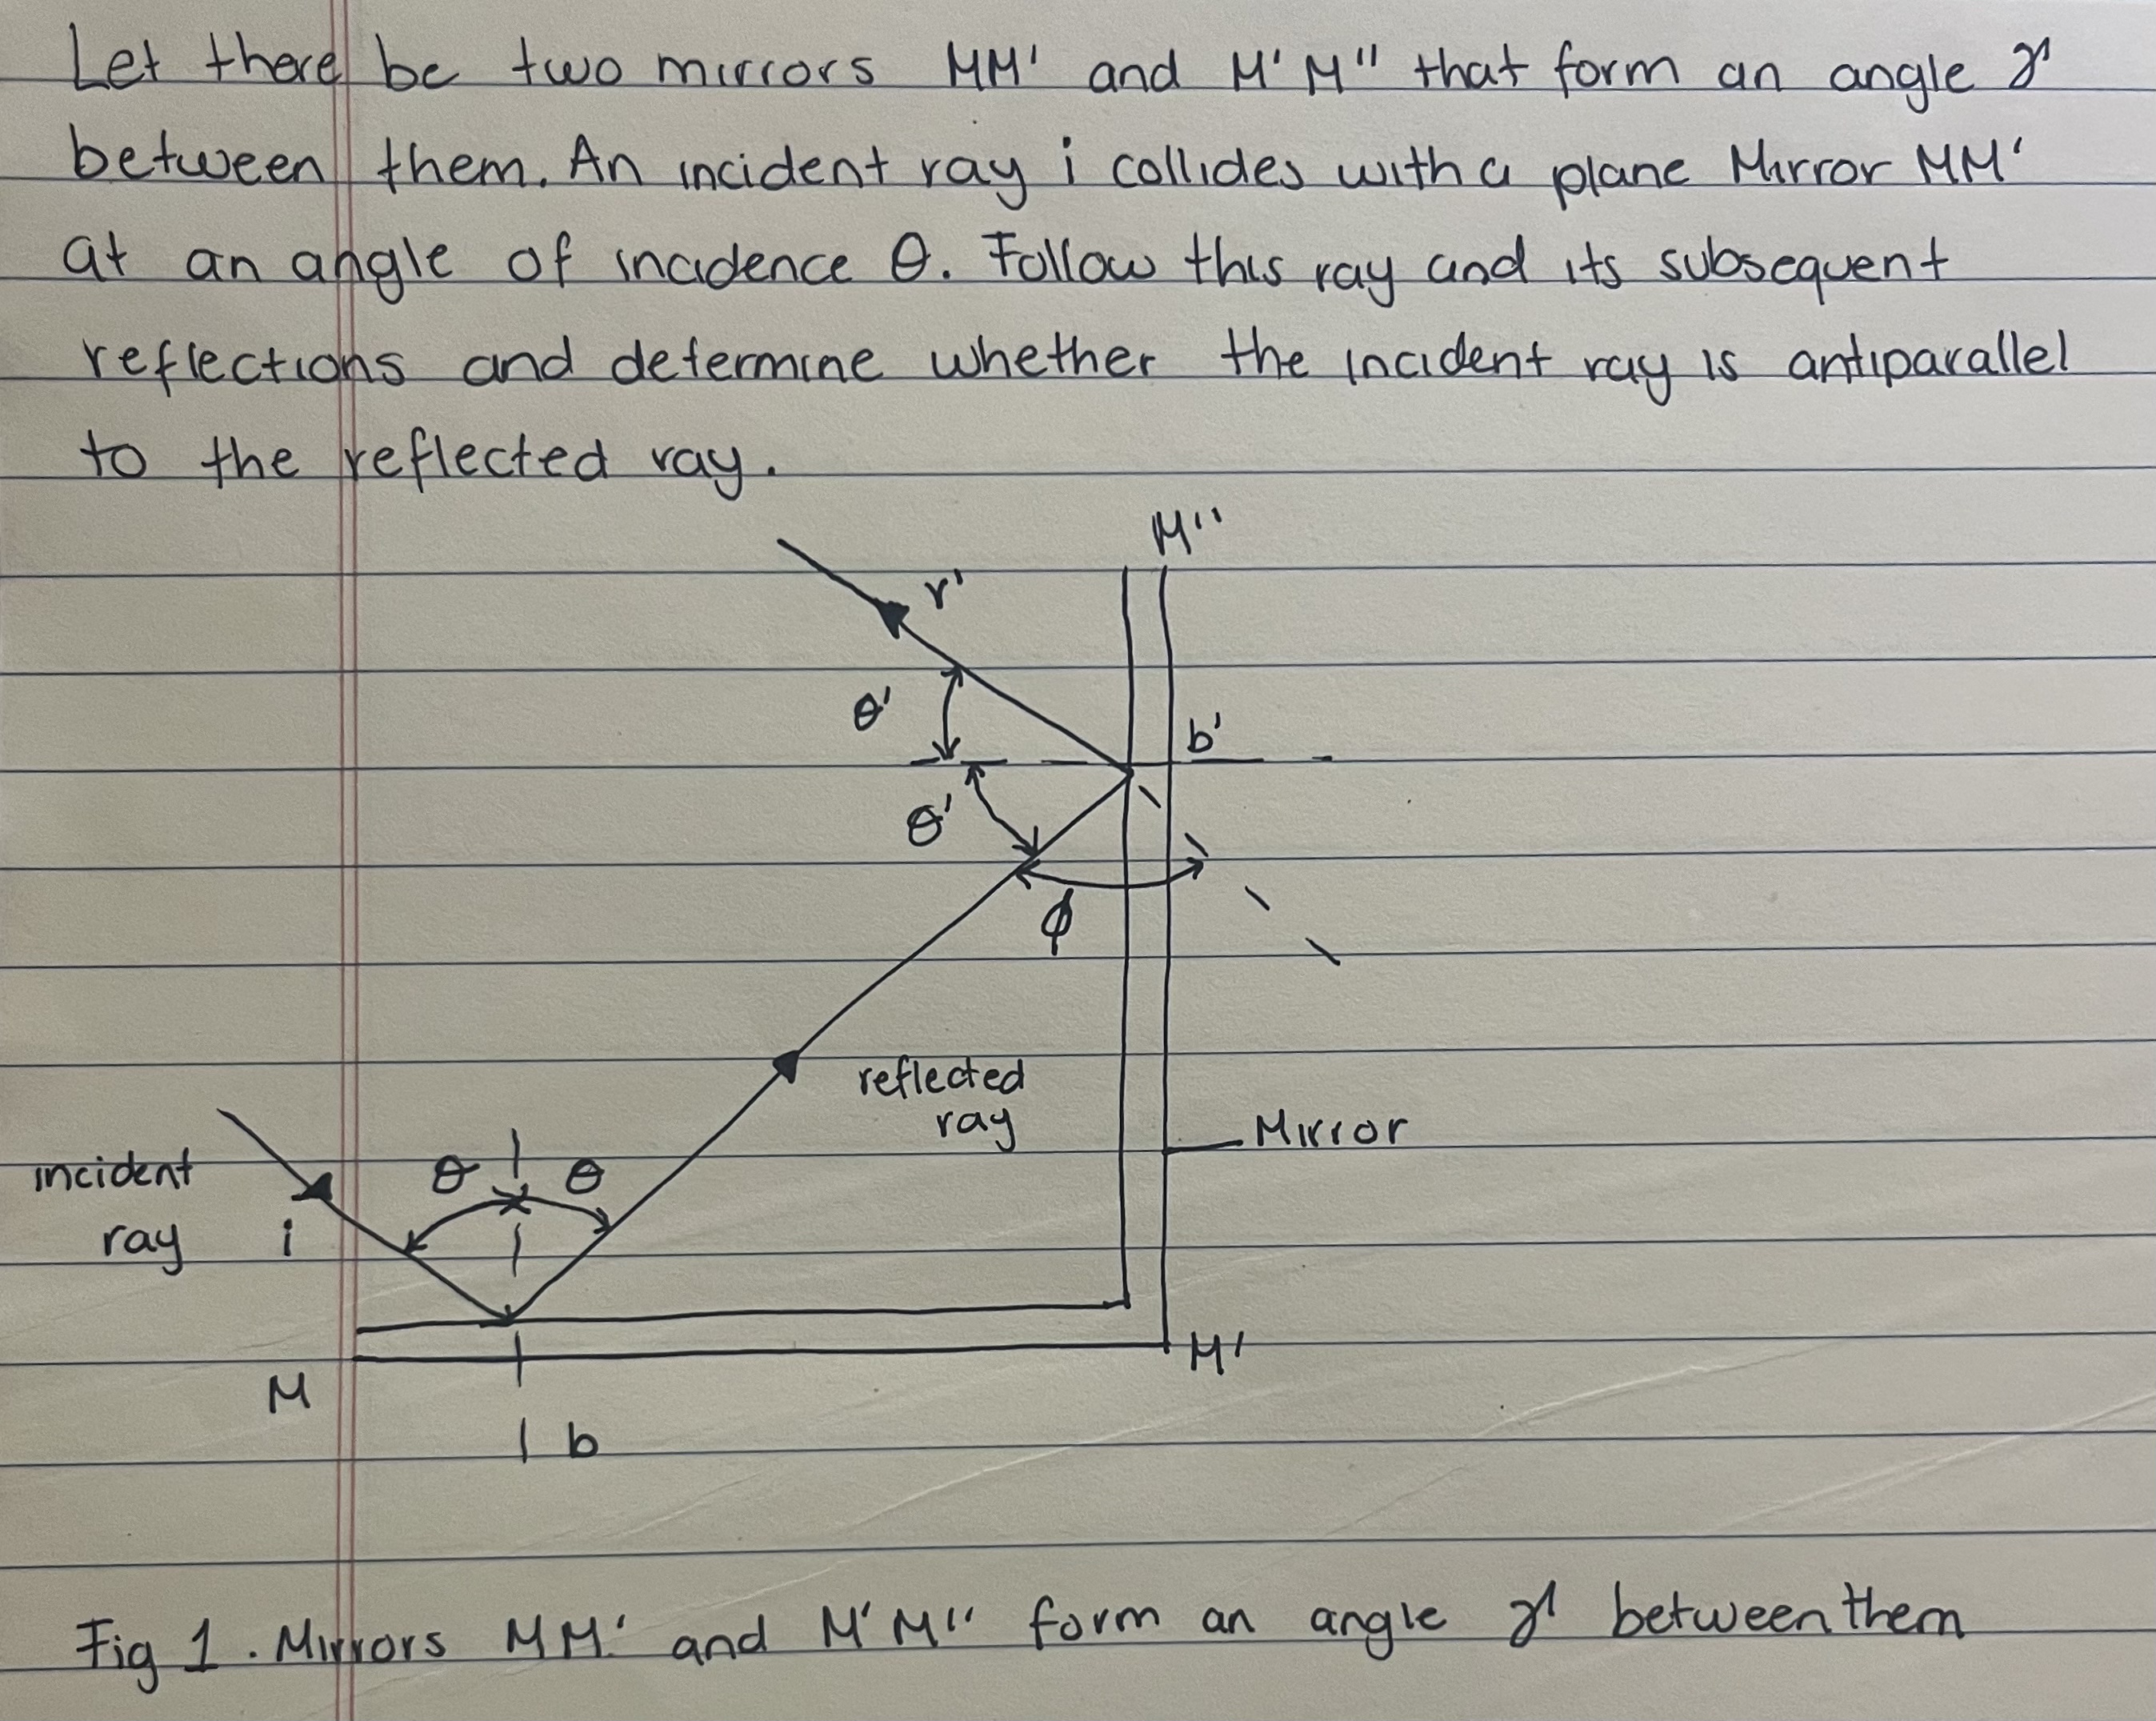 Let there be two mirrors MM' and M'M'' that form an angle γ
between them. An incident ray i collides with a plane Mirror MM'
at an angle of incidence θ. Follow this ray and its subsequent
reflections and determine whether the incident ray is antiparallel
to the reflected ray.
M''
r'
θ'
b'
θ'
ϕ
reflected
ray
Mirror
incident
ray i
θ θ
M'
M
b
Fig 1. Mirrors MM' and M'M'' form an angle γ between them